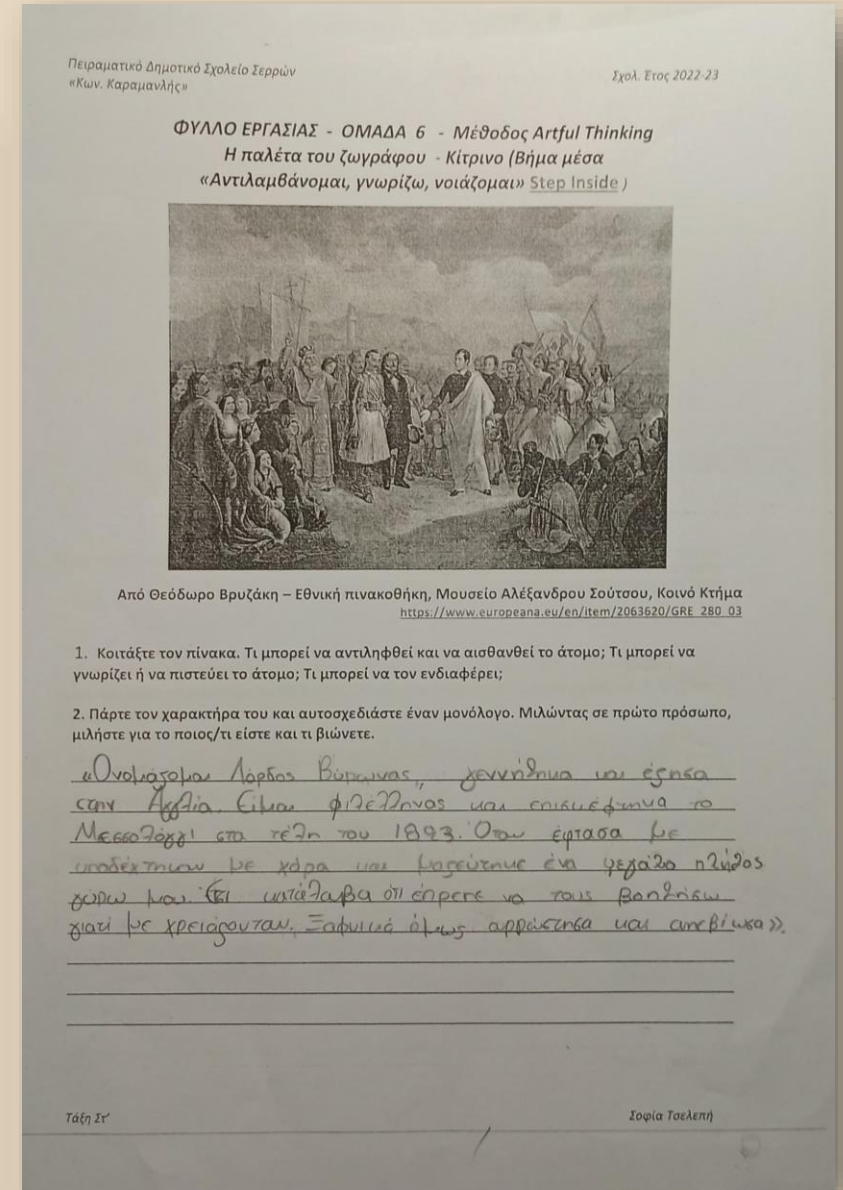 Πειραματικό Δημοτικό Σχολείο Σερρών
«Κων. Καραμανλής»
Σχολ. Έτος 2022-23
ΦΥΛΛΟ ΕΡΓΑΣΙΑΣ - ΟΜΑΔΑ 6 - Μέθοδος Artful Thinking
Η παλέτα του ζωγράφου - Κίτρινο (Βήμα μέσα
«Αντιλαμβάνομαι, γνωρίζω, νοιάζομαι» Step Inside )
Από Θεόδωρο Βρυζάκη – Εθνική πινακοθήκη, Μουσείο Αλέξανδρου Σούτσου, Κοινό Κτήμα
https://www.europeana.eu/en/item/2063620/GRE_280_03
1. Κοιτάξτε τον πίνακα. Τι μπορεί να αντιληφθεί και να αισθανθεί το άτομο; Τι μπορεί να
γνωρίζει ή να πιστεύει το άτομο; Τι μπορεί να τον ενδιαφέρει;
2. Πάρτε τον χαρακτήρα του και αυτοσχεδιάστε έναν μονόλογο. Μιλώντας σε πρώτο πρόσωπο,
μιλήστε για το ποιος/τι είστε και τι βιώνετε.
«Ονομάζομαι Λόρδος Βύρωνας, γεννήθηκα και έζησα
στην Αγγλία. Είμαι φιλέλληνας και επισκέφτηκα το
Μεσσολόγγι στα τέλη του 1893. Όταν έφτασα με
υποδέχτηκαν με χάρα και μαζεύτηκε ένα μεγάλο πλήθος
γύρω μου. Εκεί κατάλαβα ότι έπρεπε να τους βοηθήσω
γιατί με χρειάζονταν. Ξαφνικά όμως αρρώστησα και απεβίωσα».
Τάξη Στ'
Σοφία Τσελεπή